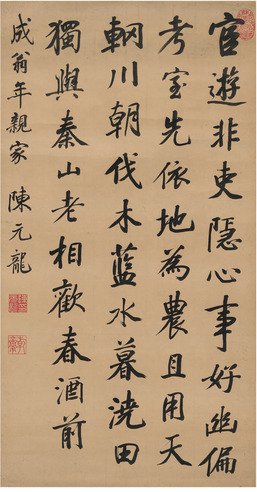 官遊非吏隱心事好幽偏
考室先依地為農且用天
輞川朝伐木藍水暮澆田
獨與秦山老相歡春酒前
成翁年親家 陳元龍